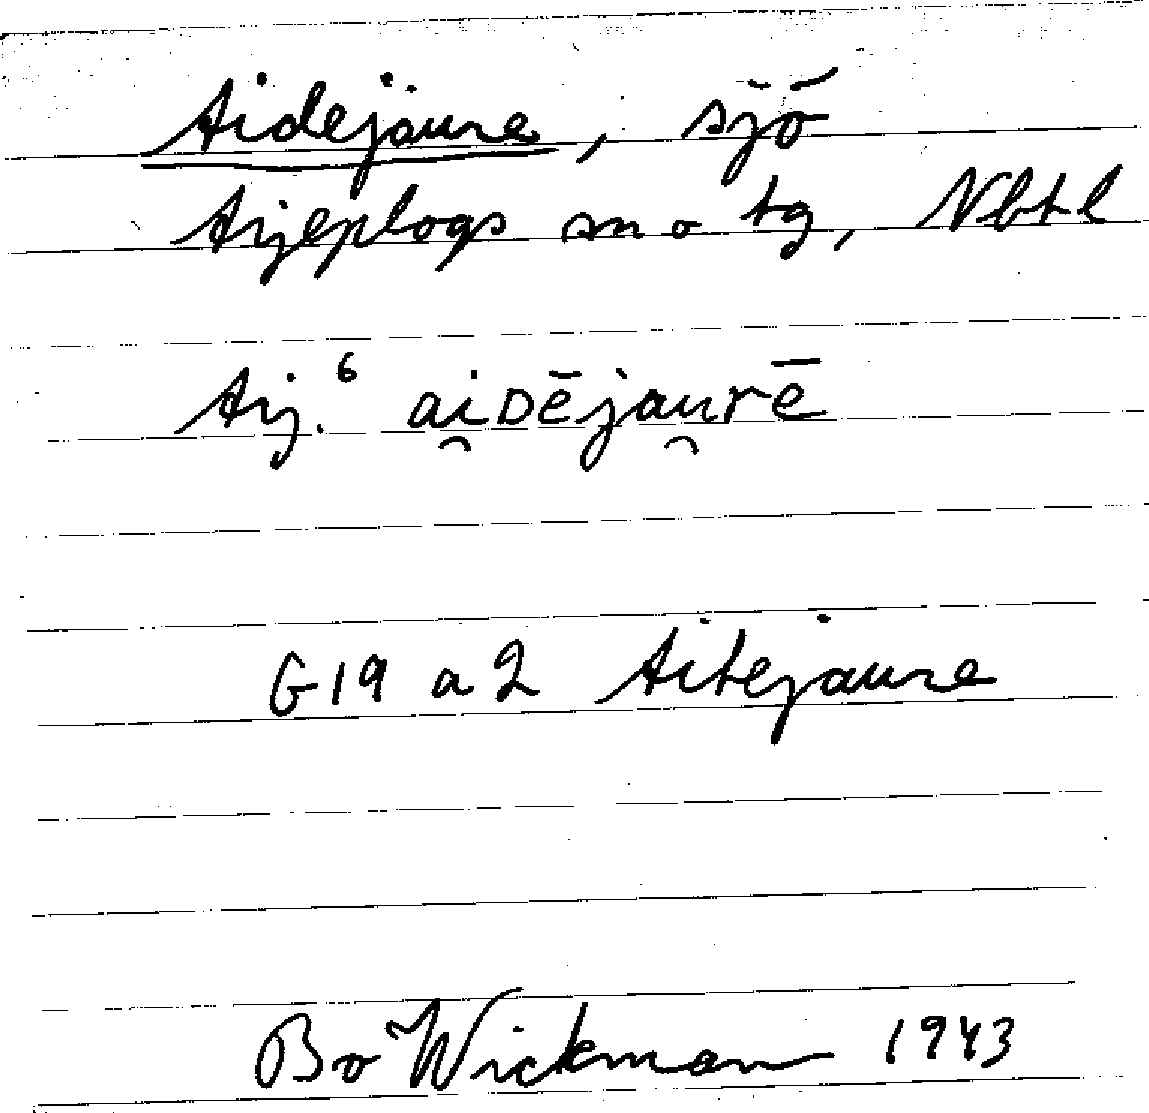 Aidejaure, sjö
Arjeplogs sn o tg, Nbtl
Arj.⁶ ai̯ᴅējau̯rē
G19 a 2 Aitejaure
Bo Wickman 1943